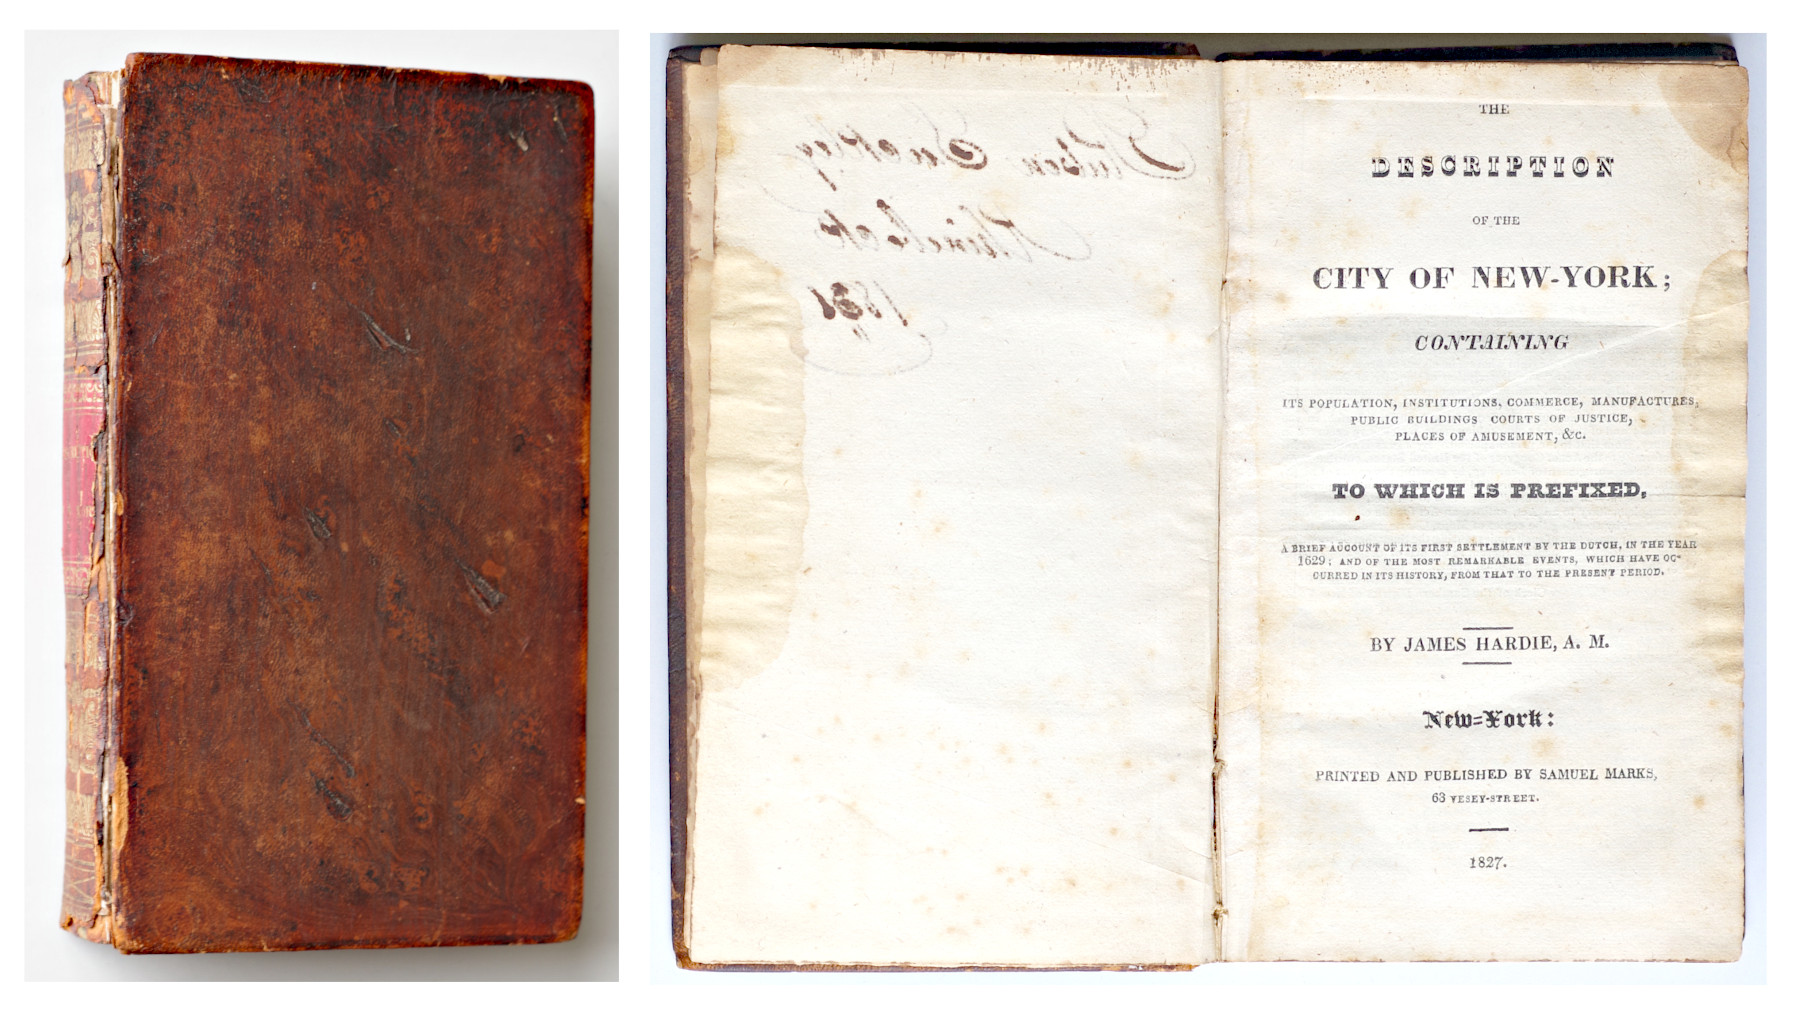 Rhinebeck
THE
DESCRIPTION
OF THE
CITY OF NEW-YORK;
CONTAINING
ITS POPULATION, INSTITUTIONS, COMMERCE, MANUFACTURES,
PUBLIC BUILDINGS COURTS OF JUSTICE,
PLACES OF AMUSEMENT, &C.
TO WHICH IS PREFIXED,
A BRIEF ACCOUNT OF ITS FIRST SETTLEMENT BY THE DUTCH, IN THE YEAR
1629; AND OF THE MOST REMARKABLE EVENTS, WHICH HAVE OC-
CURRED IN ITS HISTORY, FROM THAT TO THE PRESENT PERIOD.
BY JAMES HARDIE, A. M.
New-York:
PRINTED AND PUBLISHED BY SAMUEL MARKS,
63 VESEY-STREET.
1827.